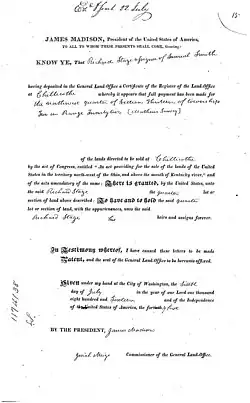 JAMES MADISON, President of the United States of America,
TO ALL TO WHOM THESE PRESENTS SHALL COME, Greeting:
KNOW YE, That Richard Stage assignee of Samuel Smith
having deposited in the General Land-Office a Certificate of the Register of the Land-Office
at Chillicothe whereby it appears that full payment has been made for
the northwest quarter of Section Thirteen of Township
Ten in Range Twenty two (Mathews Survey)
of the lands directed to be sold at Chillicothe
by the act of Congress, entitled "An act providing for the sale of the lands of the United
States in the territory north-west of the Ohio, and above the mouth of Kentucky river," and
of the acts amendatory of the same; There is granted, by the United States, unto
the said Richard Stage the quarter lot or
section of land above described; To have and to hold the said quarter
lot or section of land, with the appurtenances, unto the said
Richard Stage his heirs and assigns forever.
In Testimony whereof, I have caused these letters to be made
Patent, and the seal of the General Land-Office to be hereunto affixed.
Given under my hand at the City of Washington, the
day of July in the year of our Lord one thousand
eight hundred and and of the Independence
of the United States of America, the
BY THE PRESIDENT, James Madison
Josiah Meigs Commissioner of the General Land-Office.